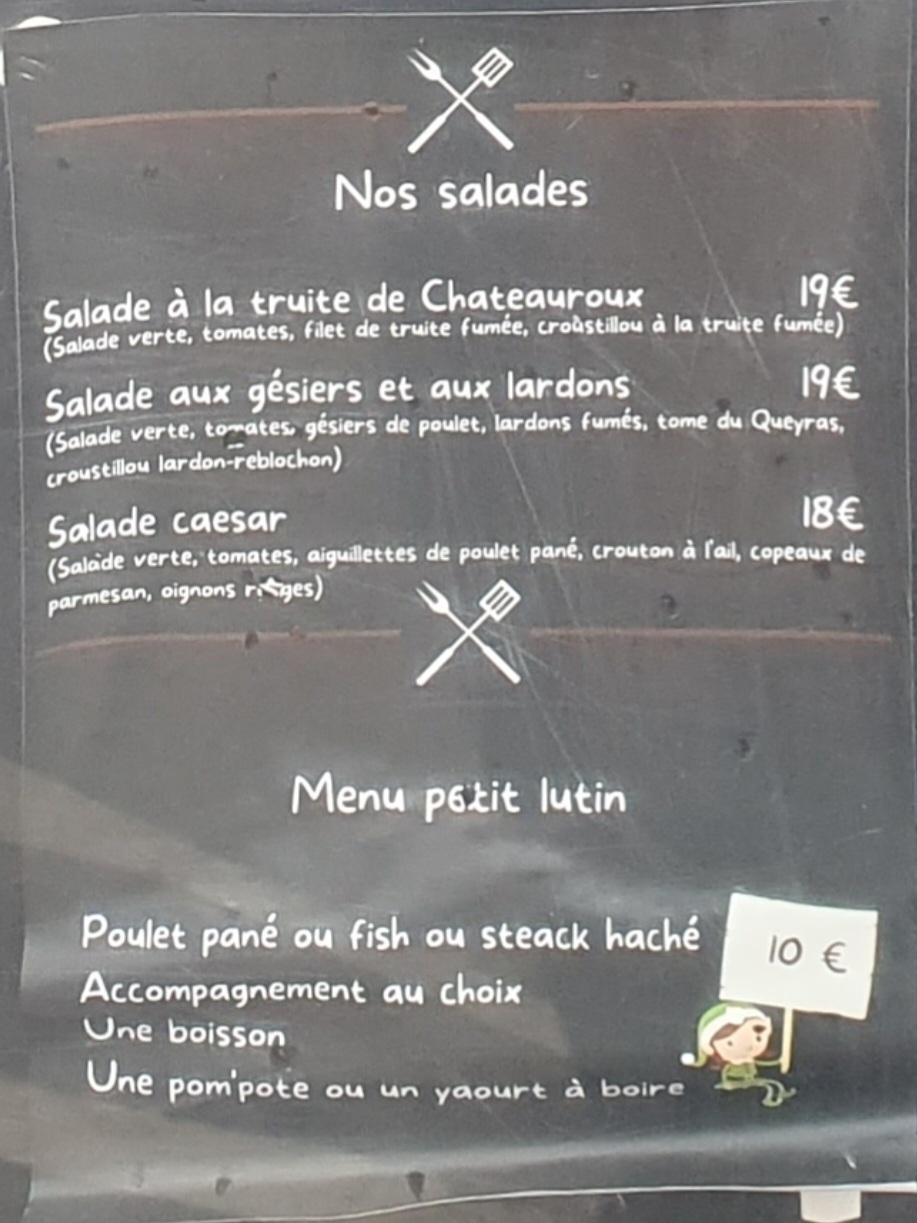 Nos salades
Salade à la truite de Chateauroux 19€
(Salade verte, tomates, filet de truite fumée, croûstillou à la truite fumée)
Salade aux gésiers et aux lardons 19€
(Salade verte, tomates, gésiers de poulet, lardons fumés, tome du Queyras,
croustillou lardon-reblochon)
Salade caesar 18€
(Salade verte, tomates, aiguillettes de poulet pané, crouton à l'ail, copeaux de
parmesan, oignons rouges)
Menu petit lutin
Poulet pané ou fish ou steack haché
10 €
Accompagnement au choix
Une boisson
Une pom'pote ou un yaourt à boire